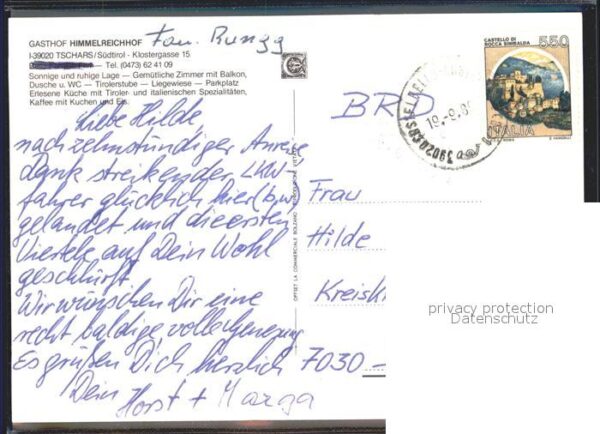 GASTHOF HIMMELREICHHOF
Fam. Rungg
I-39020 TSCHARS/Südtirol - Klostergasse 15
Tel. (0473) 62 41 09
Sonnige und ruhige Lage — Gemütliche Zimmer mit Balkon,
Dusche u. WC — Tirolerstube — Liegewiese — Parkplatz
Erlesene Küche mit Tiroler- und italienischen Spezialitäten,
Kaffee mit Kuchen und Eis.
Liebe Hilde
nach zehnstündiger Anreise
Dank streikender LKW-
fahrer glücklich hier (b.w)
gelandet und die ersten
Viertele auf Dein Wohl
geschlürft
Wir wünschen Dir eine
recht baldige volle Genesung
Es grüßen Dich herzlich
Dein Horst + Marga
OFFSET LA COMMERCIALE BOLZANO
CASTELLO DI
ROCCA SINIBALDA
550
ITALIA
39020
BRD
Frau
Hilde
Kreisk
7030
privacy protection
Datenschutz